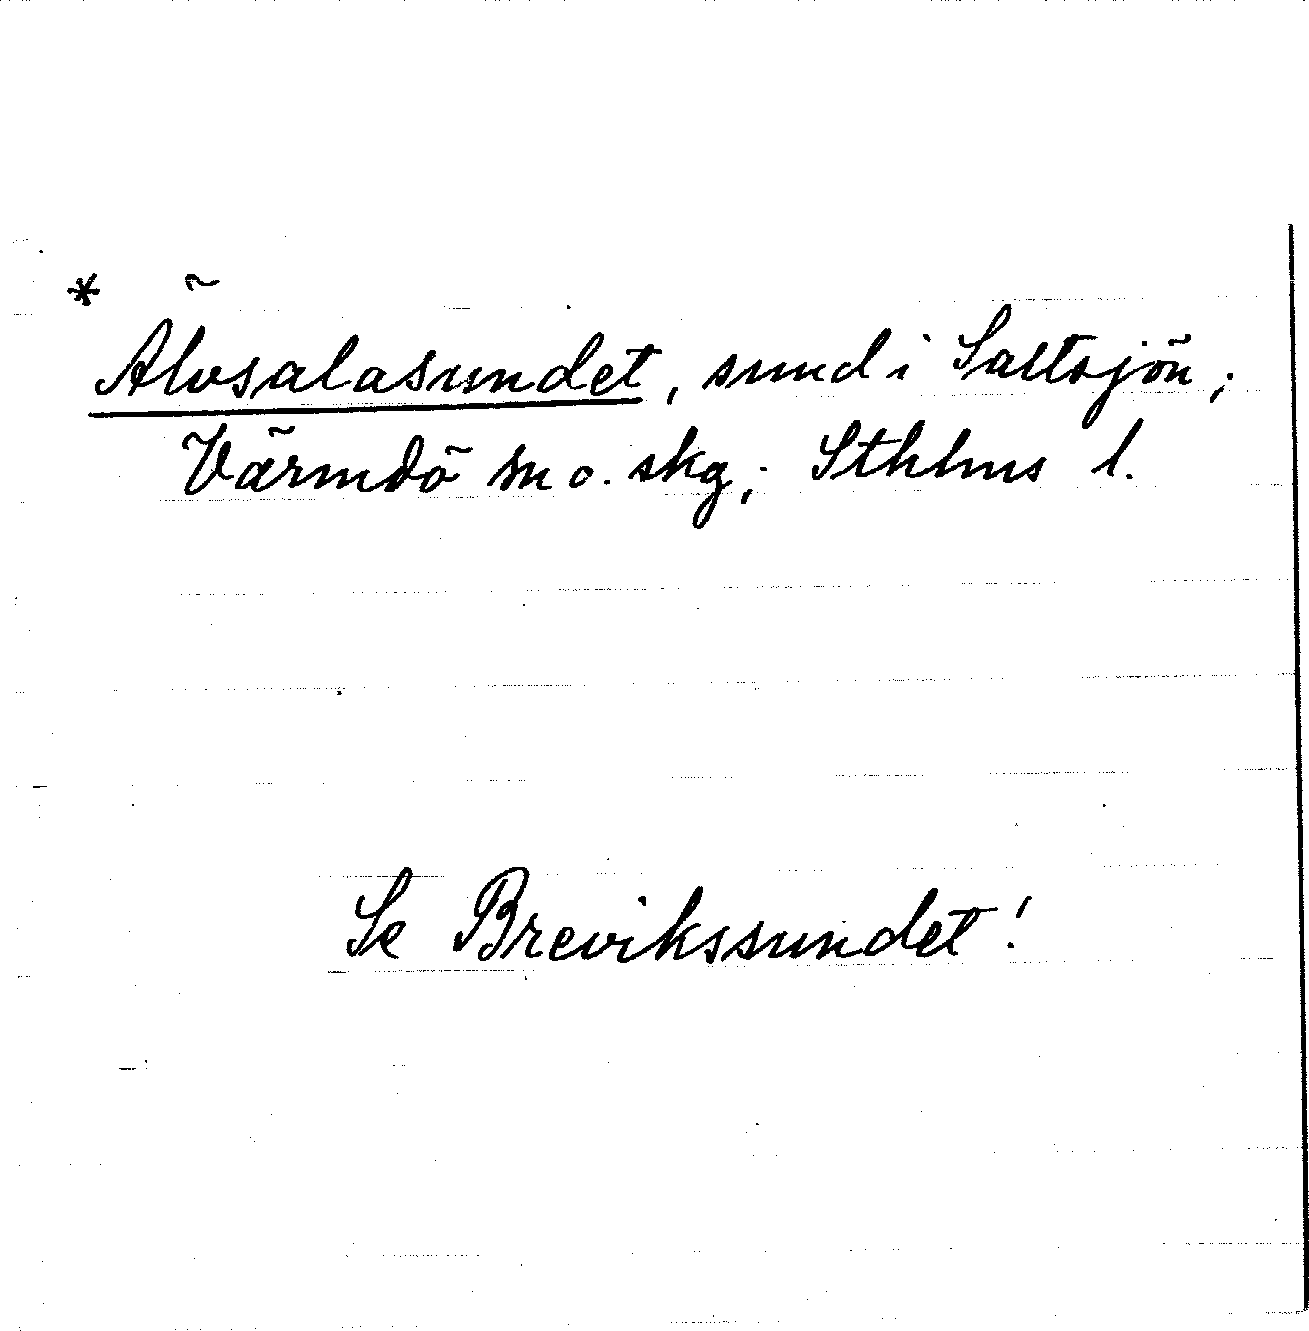 * Älvsalasundet, sund i Saltsjön;
Värmdö sn o. skg; Sthlms l.
Se Brevikssundet!